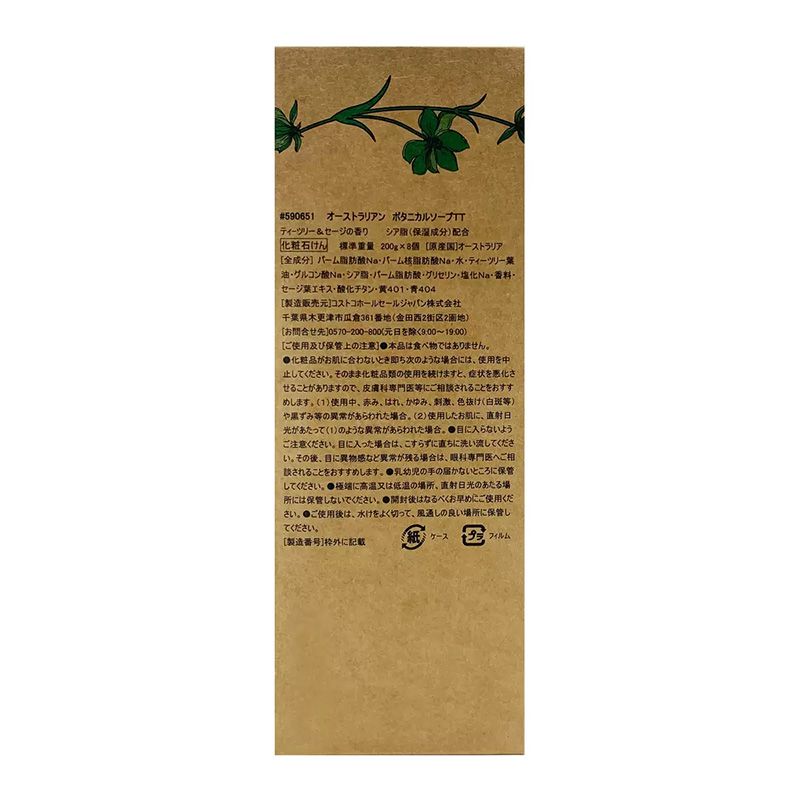 #590651 オーストラリアン ボタニカルソープTT
ティーツリー＆セージの香り シア脂（保湿成分）配合
化粧石けん 標準重量 200g×8個 [原産国]オーストラリア
[全成分] パーム脂肪酸Na・パーム核脂肪酸Na・水・ティーツリー葉
油・グルコン酸Na・シア脂・パーム脂肪酸・グリセリン・塩化Na・香料・
セージ葉エキス・酸化チタン・黄401・青404
[製造販売元]コストコホールセールジャパン株式会社
千葉県木更津市瓜倉361番地（金田西2街区2画地）
[お問合せ先]0570-200-800(元日を除く9:00～19:00)
[ご使用及び保管上の注意]●本品は食べ物ではありません。
●化粧品がお肌に合わないとき即ち次のような場合には、使用を中
止してください。そのまま化粧品類の使用を続けますと、症状を悪化さ
せることがありますので、皮膚科専門医等にご相談されることをおすす
めします。（1）使用中、赤み、はれ、かゆみ、刺激、色抜け（白斑等）
や黒ずみ等の異常があらわれた場合。（2）使用したお肌に、直射日
光があたって（1）のような異常があらわれた場合。●目に入らないよう
ご注意ください。目に入った場合は、こすらずに直ちに洗い流してくださ
い。その後、目に異物感など異常が残る場合は、眼科専門医へご相
談されることをおすすめします。●乳幼児の手の届かないところに保管
してください。●極端に高温又は低温の場所、直射日光のあたる場
所には保管しないでください。●開封後はなるべくお早めにご使用くだ
さい。●ご使用後は、水けをよく切って、風通しの良い場所に保管し
てください。
[製造番号]枠外に記載 紙 ケース プラ フィルム